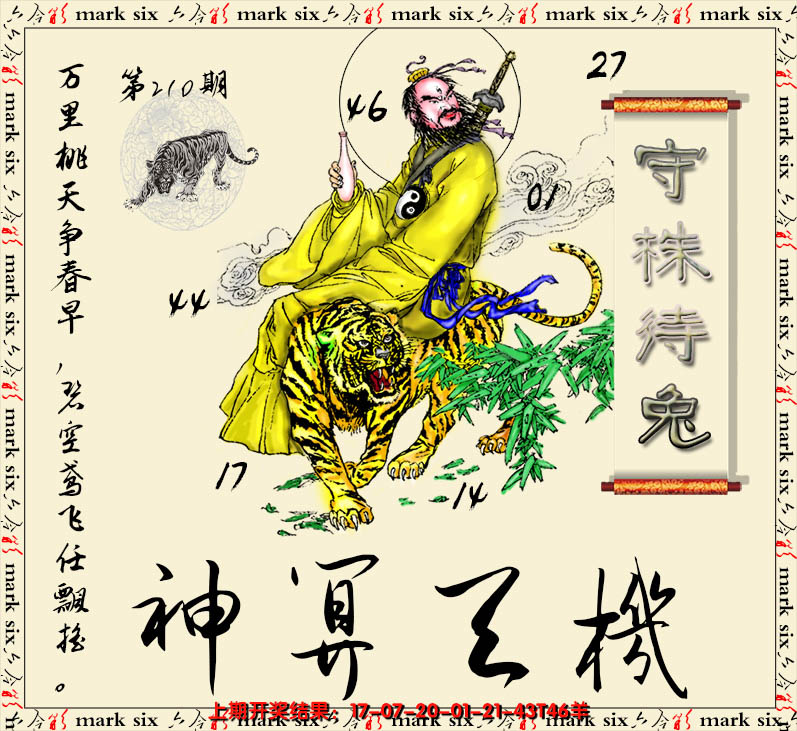 六合彩 mark six 六合彩 mark six 六合彩 mark six 六合彩 mark six 六合彩
第210期
万里桃天争春早，碧空鸢飞任飘摇。
27
46
01
44
17
14
守株待兔
神算天機
上期开奖结果：17-07-20-01-21-43T46羊
六合彩 mark six 六合彩 mark six 六合彩 mark six 六合彩 mark six 六合彩